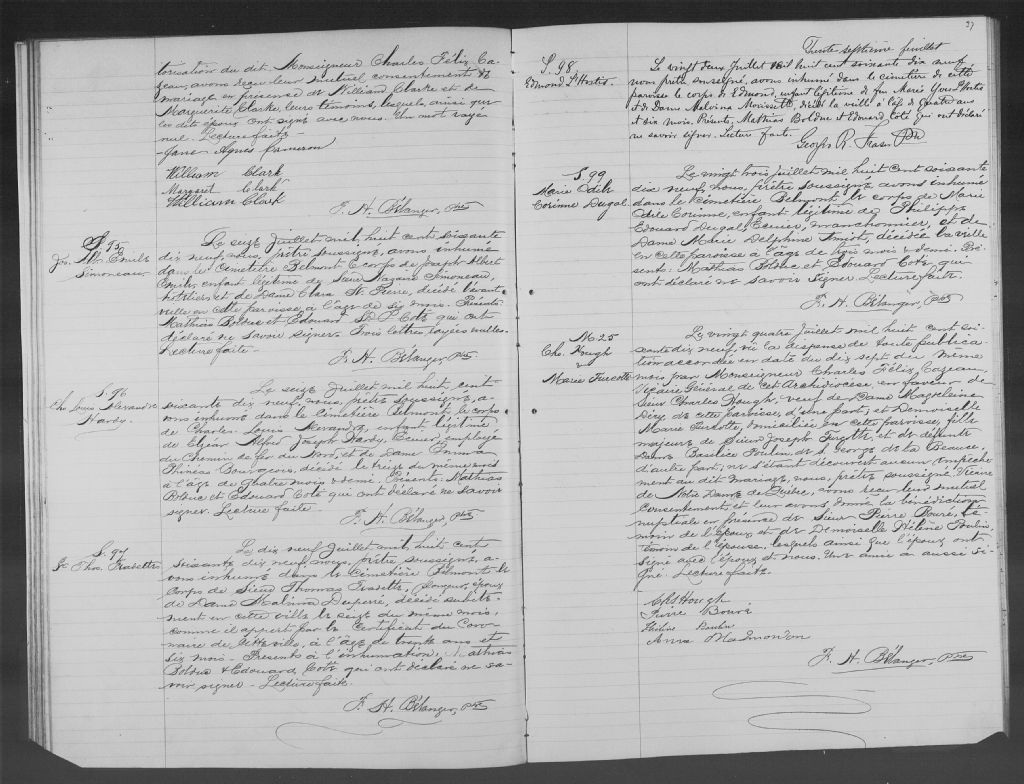 torisation du dit Monseigneur Charles Félix Ca-
zeau, avons reçu leur mutuel consentement de
mariage en présence de William Clarke et de
Marguerite Clarke, leurs témoins, lesquels, ainsi que
les dits époux ont signé avec nous. Un mot rayé
nul. Lecture faite.
Jane Agnes Cameron
William Clark
Margaret Clark
William Clark
F. H. Bélanger, Ptre
S. 95
Jos. Alb. Emile
Simoneau
Le seize Juillet mil huit cent soixante
dix neuf, nous, prêtre soussigné, avons inhumé
dans le Cimetière Belmont le corps de Joseph Albert
Emile, enfant légitime de Sieur Nazaire Simoneau,
hôtelier, et de Dame Clara St. Pierre, décédé l'avant-
veille en cette paroisse à l'âge de six mois. Présents
Mathias Bolduc et Edouard Coté qui ont
déclaré ne savoir signer. Trois lettres rayées nulles.
Lecture faite.
F. H. Bélanger, Ptre
S. 96
Chs Louis Alexandre
Hardy.
Le seize Juillet mil huit cent
soixante dix neuf, nous, prêtre soussigné, a-
vons inhumé dans le Cimetière Belmont le corps
de Charles Louis Alexandre, enfant légitime
de Elzéar Alfred Joseph Hardy, Ecuier, employé
du Chemin de fer du Nord, et de Dame Emma
Bourgeois, décédé le treize du même mois
à l'âge de quatre mois et demi. Présents Mathias
Bolduc et Edouard Coté qui ont déclaré ne savoir
signer. Lecture faite.
F. H. Bélanger, Ptre
S. 97
Thos.
Le dix neuf Juillet mil huit cent
soixante dix neuf, nous, prêtre soussigné, a-
vons inhumé dans le Cimetière Belmont le
corps de Sieur Thomas époux
de Dame Malvina Duperré, décédé subite-
ment en cette ville le seize du même mois,
comme il appert par le Certificat du Coro-
naire de cette ville, à l'âge de trente ans et
six mois. Présents à l'inhumation, Mathias
Bolduc & Edouard Coté qui ont déclaré ne sa-
voir signer. Lecture faite.
F. H. Bélanger, Ptre
37
Trente septième feuillet
S. 98
Edmond
Le vingt deux Juillet mil huit cent soixante dix neuf
nous prêtre soussigné, avons inhumé dans le cimetière de cette
paroisse le corps de Edmond, enfant légitime de feu Marie
et de Dame Malvina Morissette, décédé la veille à l'âge de quatre ans
et dix mois. Présents, Mathias Bolduc et Edouard Coté qui ont déclaré
ne savoir signer. Lecture faite.
Georges R. Fraser Ptre
S. 99
Marie Odile
Corinne Dugal.
Le vingt trois Juillet mil huit cent soixante
dix neuf, nous, prêtre soussigné, avons inhumé
dans le cimetière Belmont le corps de Marie
Odile Corinne, enfant légitime de Philippe
Edouard Dugal, Ecuier, et de
Dame Marie Delphine Smith, décédée la veille
en cette paroisse à l'âge de trois mois et demi. Pré-
sents: Mathias Bolduc et Edouard Coté qui
ont déclaré ne savoir signer. Lecture faite.
F. H. Bélanger, Ptre
M. 25
Chs. Hough
&
Marie Turcotte
Le vingt quatre Juillet mil huit cent soi-
xante dix neuf, vu la dispense de toute publica-
tion accordée en date du dix sept du même
mois par Monseigneur Charles Félix Cazeau,
Vicaire Général de cet Archidiocèse, en faveur de
Sieur Charles Hough, veuf de Dame Magdeleine
de cette paroisse, d'une part; et Demoiselle
Marie Turcotte, domiciliée en cette paroisse, fille
majeure de Sieur Joseph Turcotte et de défunte
Dame Basilice Poulin, de St. George de la Beauce,
d'autre part; ne s'étant découvert aucun empêche-
ment au dit mariage, nous, prêtre soussigné, Vicaire
de Notre Dame de Québec, avons reçu leur mutuel
consentement et leur avons donné la bénédiction
nuptiale en présence de Sieur Pierre Bouré, té-
moin de l'époux et de Demoiselle Hélène Poulin,
témoin de l'épouse, lesquels ainsi que l'époux ont
signé avec l'époux et nous. Une amie a aussi si-
gné. Lecture faite.
Chs Hough
Pierre Bouré
Hélène Poulin
Anna
F. H. Bélanger, Ptre